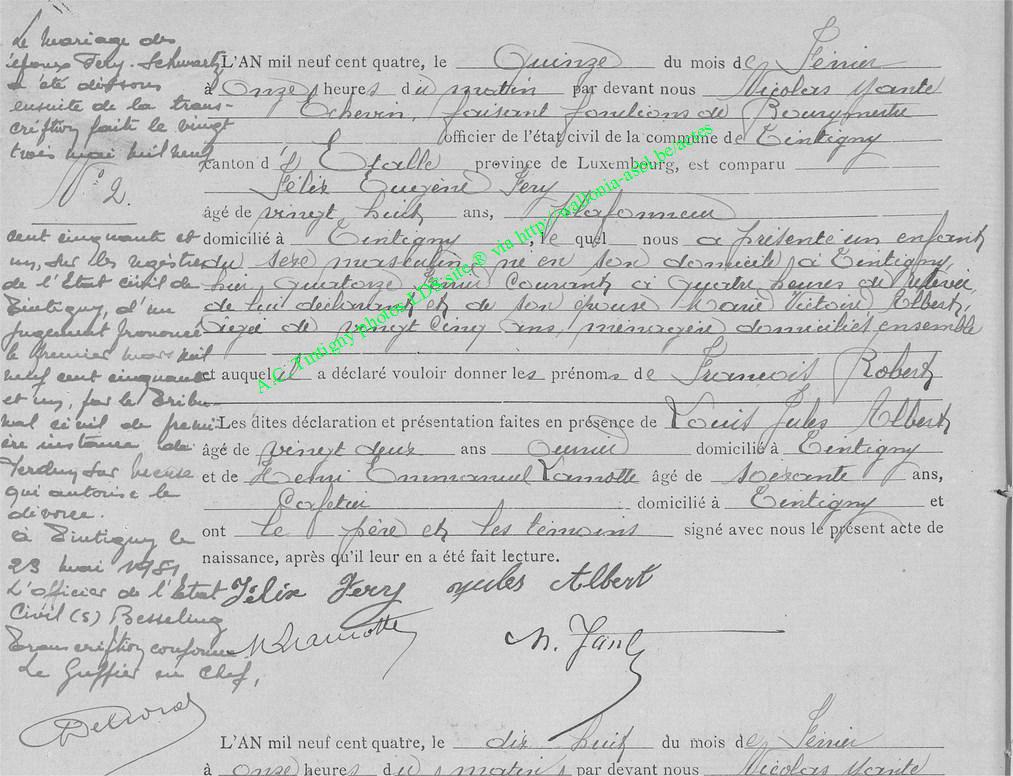 Le mariage des
époux Fery-Schwartz
a été dissous
ensuite de la trans-
cription faite le vingt
trois mai mil neuf
N° 2.
cent cinquante et
un, sur les registres
de l'Etat civil de
Tintigny, d'un
jugement prononcé
le premier mars mil
neuf cent cinquante
et un, par le Tribu-
nal civil de premi-
ère instance de
Verdun sur Meuse
qui autorise le
divorce.
à Tintigny le
23 mai 1951
L'officier de l'Etat
Civil (s) Besseling
Transcription conforme
Le Greffier en Chef,
L'AN mil neuf cent quatre, le Quinze du mois de Février
à Onze heures du matin par devant nous Nicolas
Echevin, faisant fonctions de Bourgmestre
officier de l'état civil de la commune de Tintigny
canton d'Etalle province de Luxembourg, est comparu
Félix Eugène Fery
âgé de vingt huit ans, plafonneur
domicilié à Tintigny, le quel nous a présenté un enfant
du sexe masculin né en son domicile à Tintigny,
hier Quatorze Février Courant à Quatre heures de relevée,
de lui déclarant et de son épouse Marie Victoire Albert,
âgée de vingt cinq ans, ménagère domiciliés ensemble
et auquel il a déclaré vouloir donner les prénoms de François Robert
Les dites déclaration et présentation faites en présence de Louis Jules Albert
âgé de vingt deux ans domicilié à Tintigny
et de Henri Emmanuel Lamotte âgé de soixante ans,
Cafetier domicilié à Tintigny et
ont le père et les témoins signé avec nous le présent acte de
naissance, après qu'il leur en a été fait lecture.
Félix Fery Jules Albert
H Lamotte N.
A.C. Tintigny photos LDS site ® via http://wallonia-asbl.be/actes
L'AN mil neuf cent quatre, le dix huit du mois de Février
à onze heures du matin par devant nous Nicolas